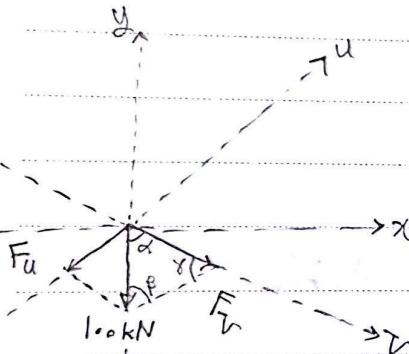 y
u
x
α
F_u
γ
β
F_v
100kN
v